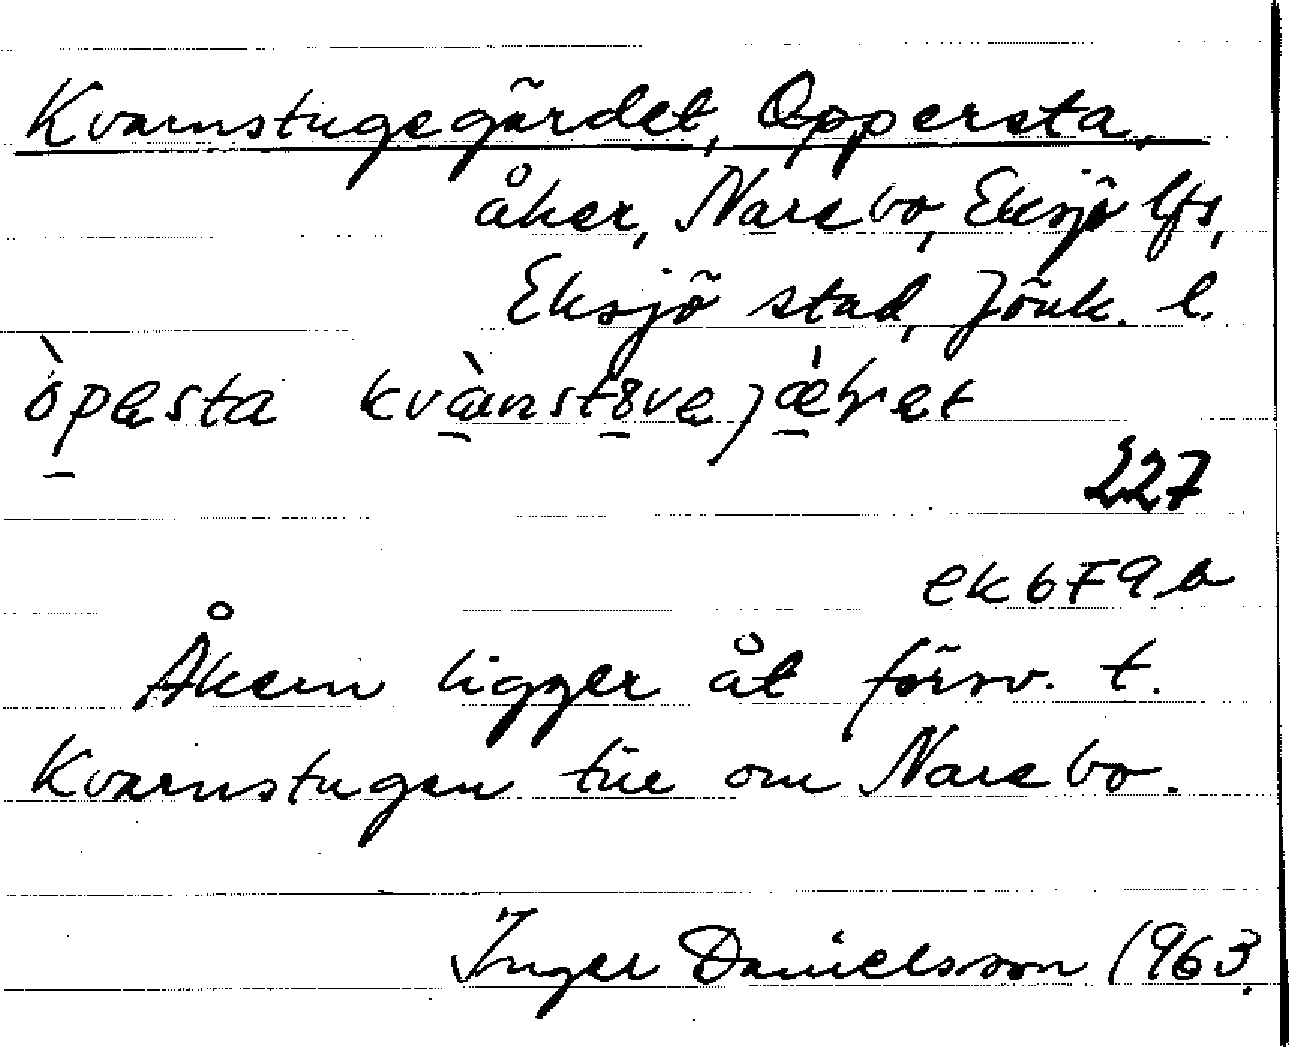 Kvarnstugegärdet, Oppersta,
åker, Narebo, Eksjö lfs,
Eksjö stad, Jönk. l.
òpesta
227
ek 6F9b
Åkern ligger åt försv. t.
Kvarnstugan till om Narebo.
Inger Danielsson 1963.